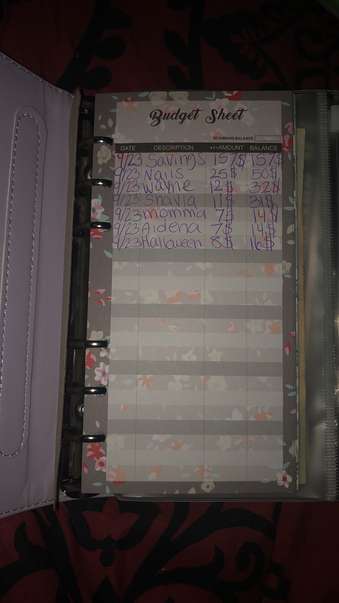 Budget Sheet
BEGINNING BALANCE
DATE DESCRIPTION +/-AMOUNT BALANCE
9/23 Savings 157$ 157$
9/23 Nails 25$ 50$
9/23 Wayne 12$ 32$
9/23 11$ 31$
9/23 momma 7$ 14$
9/23 Aidena 7$ 14$
9/23 Halloween 8$ 16$